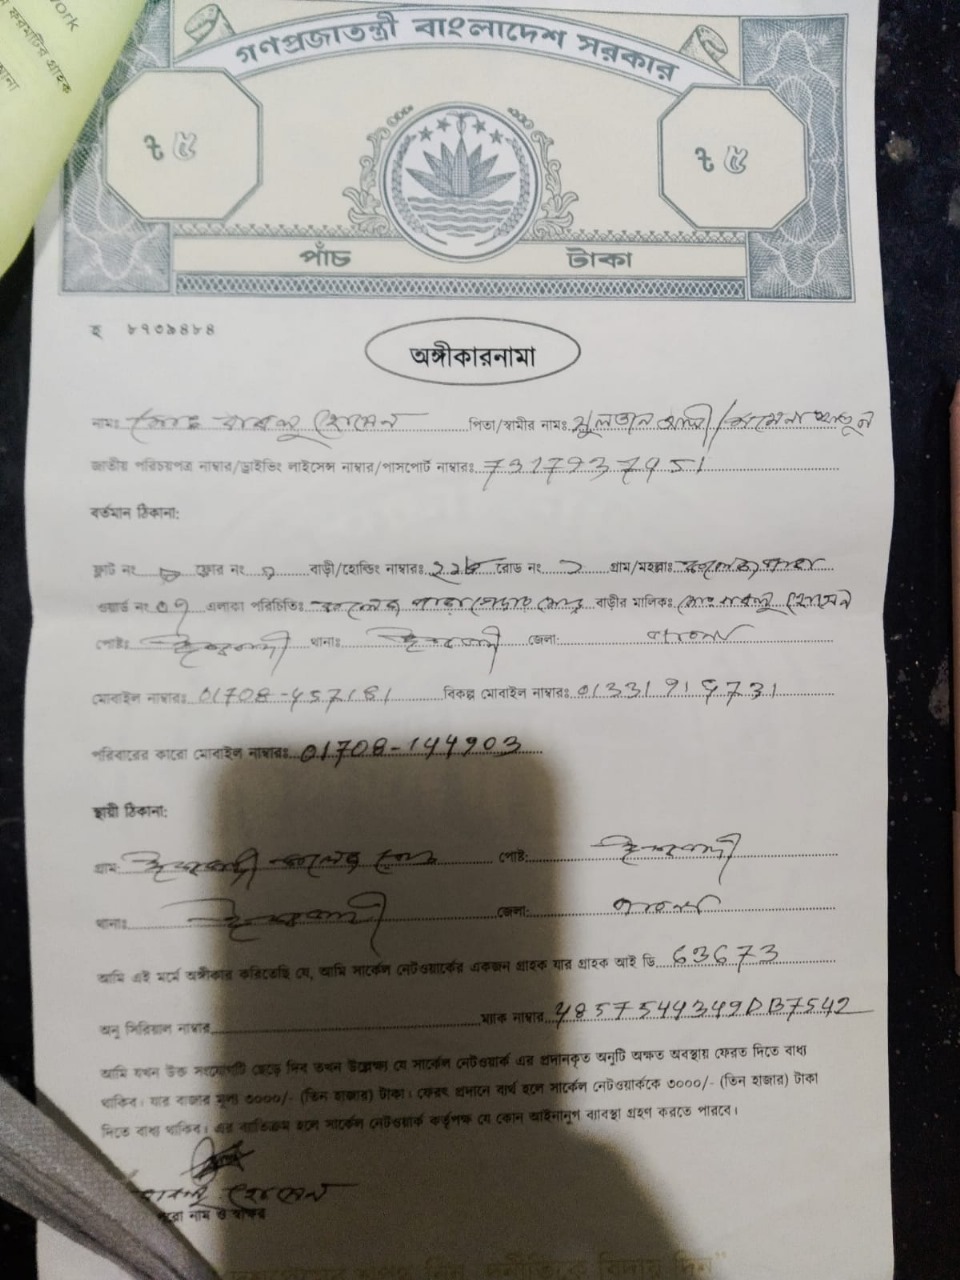 work
গণপ্রজাতন্ত্রী বাংলাদেশ সরকার
৳ ৫ ৳ ৫
পাঁচ টাকা
হ ৮৭৩৯৪৮৪
অঙ্গীকারনামা
নামঃ মোঃ বাবলু হোসেন পিতা/স্বামীর নামঃ সুলতান আলী/ খাতুন
জাতীয় পরিচয়পত্র নাম্বার/ড্রাইভিং লাইসেন্স নাম্বার/পাসপোর্ট নাম্বারঃ 7317937951
বর্তমান ঠিকানা:
ফ্লাট নং ফ্লোর নং বাড়ী/হোল্ডিং নাম্বারঃ রোড নং গ্রাম/মহল্লাঃ
ওয়ার্ড নং 07 এলাকা পরিচিতিঃ বাড়ীর মালিকঃ মোঃ বাবলু হোসেন
পোষ্টঃ ঈশ্বরদী থানাঃ ঈশ্বরদী জেলা: পাবনা
মোবাইল নাম্বারঃ 01708-457181 বিকল্প মোবাইল নাম্বারঃ 01331915731
পরিবারের কারো মোবাইল নাম্বারঃ 01708-144903
স্থায়ী ঠিকানা:
গ্রাম: ঈশ্বরদী কলেজ রোড পোষ্ট: ঈশ্বরদী
থানাঃ ঈশ্বরদী জেলা: পাবনা
আমি এই মর্মে অঙ্গীকার করিতেছি যে, আমি সার্কেল নেটওয়ার্কের একজন গ্রাহক যার গ্রাহক আই ডি 63673
অনু সিরিয়াল নাম্বার ম্যাক নাম্বার 4857544349DB7542
আমি যখন উক্ত সংযোগটি ছেড়ে দিব তখন উল্লেক্ষ্য যে সার্কেল নেটওয়ার্ক এর প্রদানকৃত অনুটি অক্ষত অবস্থায় ফেরত দিতে বাধ্য
থাকিব। যার বাজার মূল্য ৩০০০/- (তিন হাজার) টাকা। ফেরৎ প্রদানে ব্যর্থ হলে সার্কেল নেটওয়ার্ককে ৩০০০/- (তিন হাজার) টাকা
দিতে বাধ্য থাকিব। এর ব্যতিক্রম হলে সার্কেল নেটওয়ার্ক কর্তৃপক্ষ যে কোন আইনানুগ ব্যবস্থা গ্রহণ করতে পারবে।
বাবলু হোসেন
পুরো নাম ও স্বাক্ষর
দুর্নীতিকে বিদায় দিন"